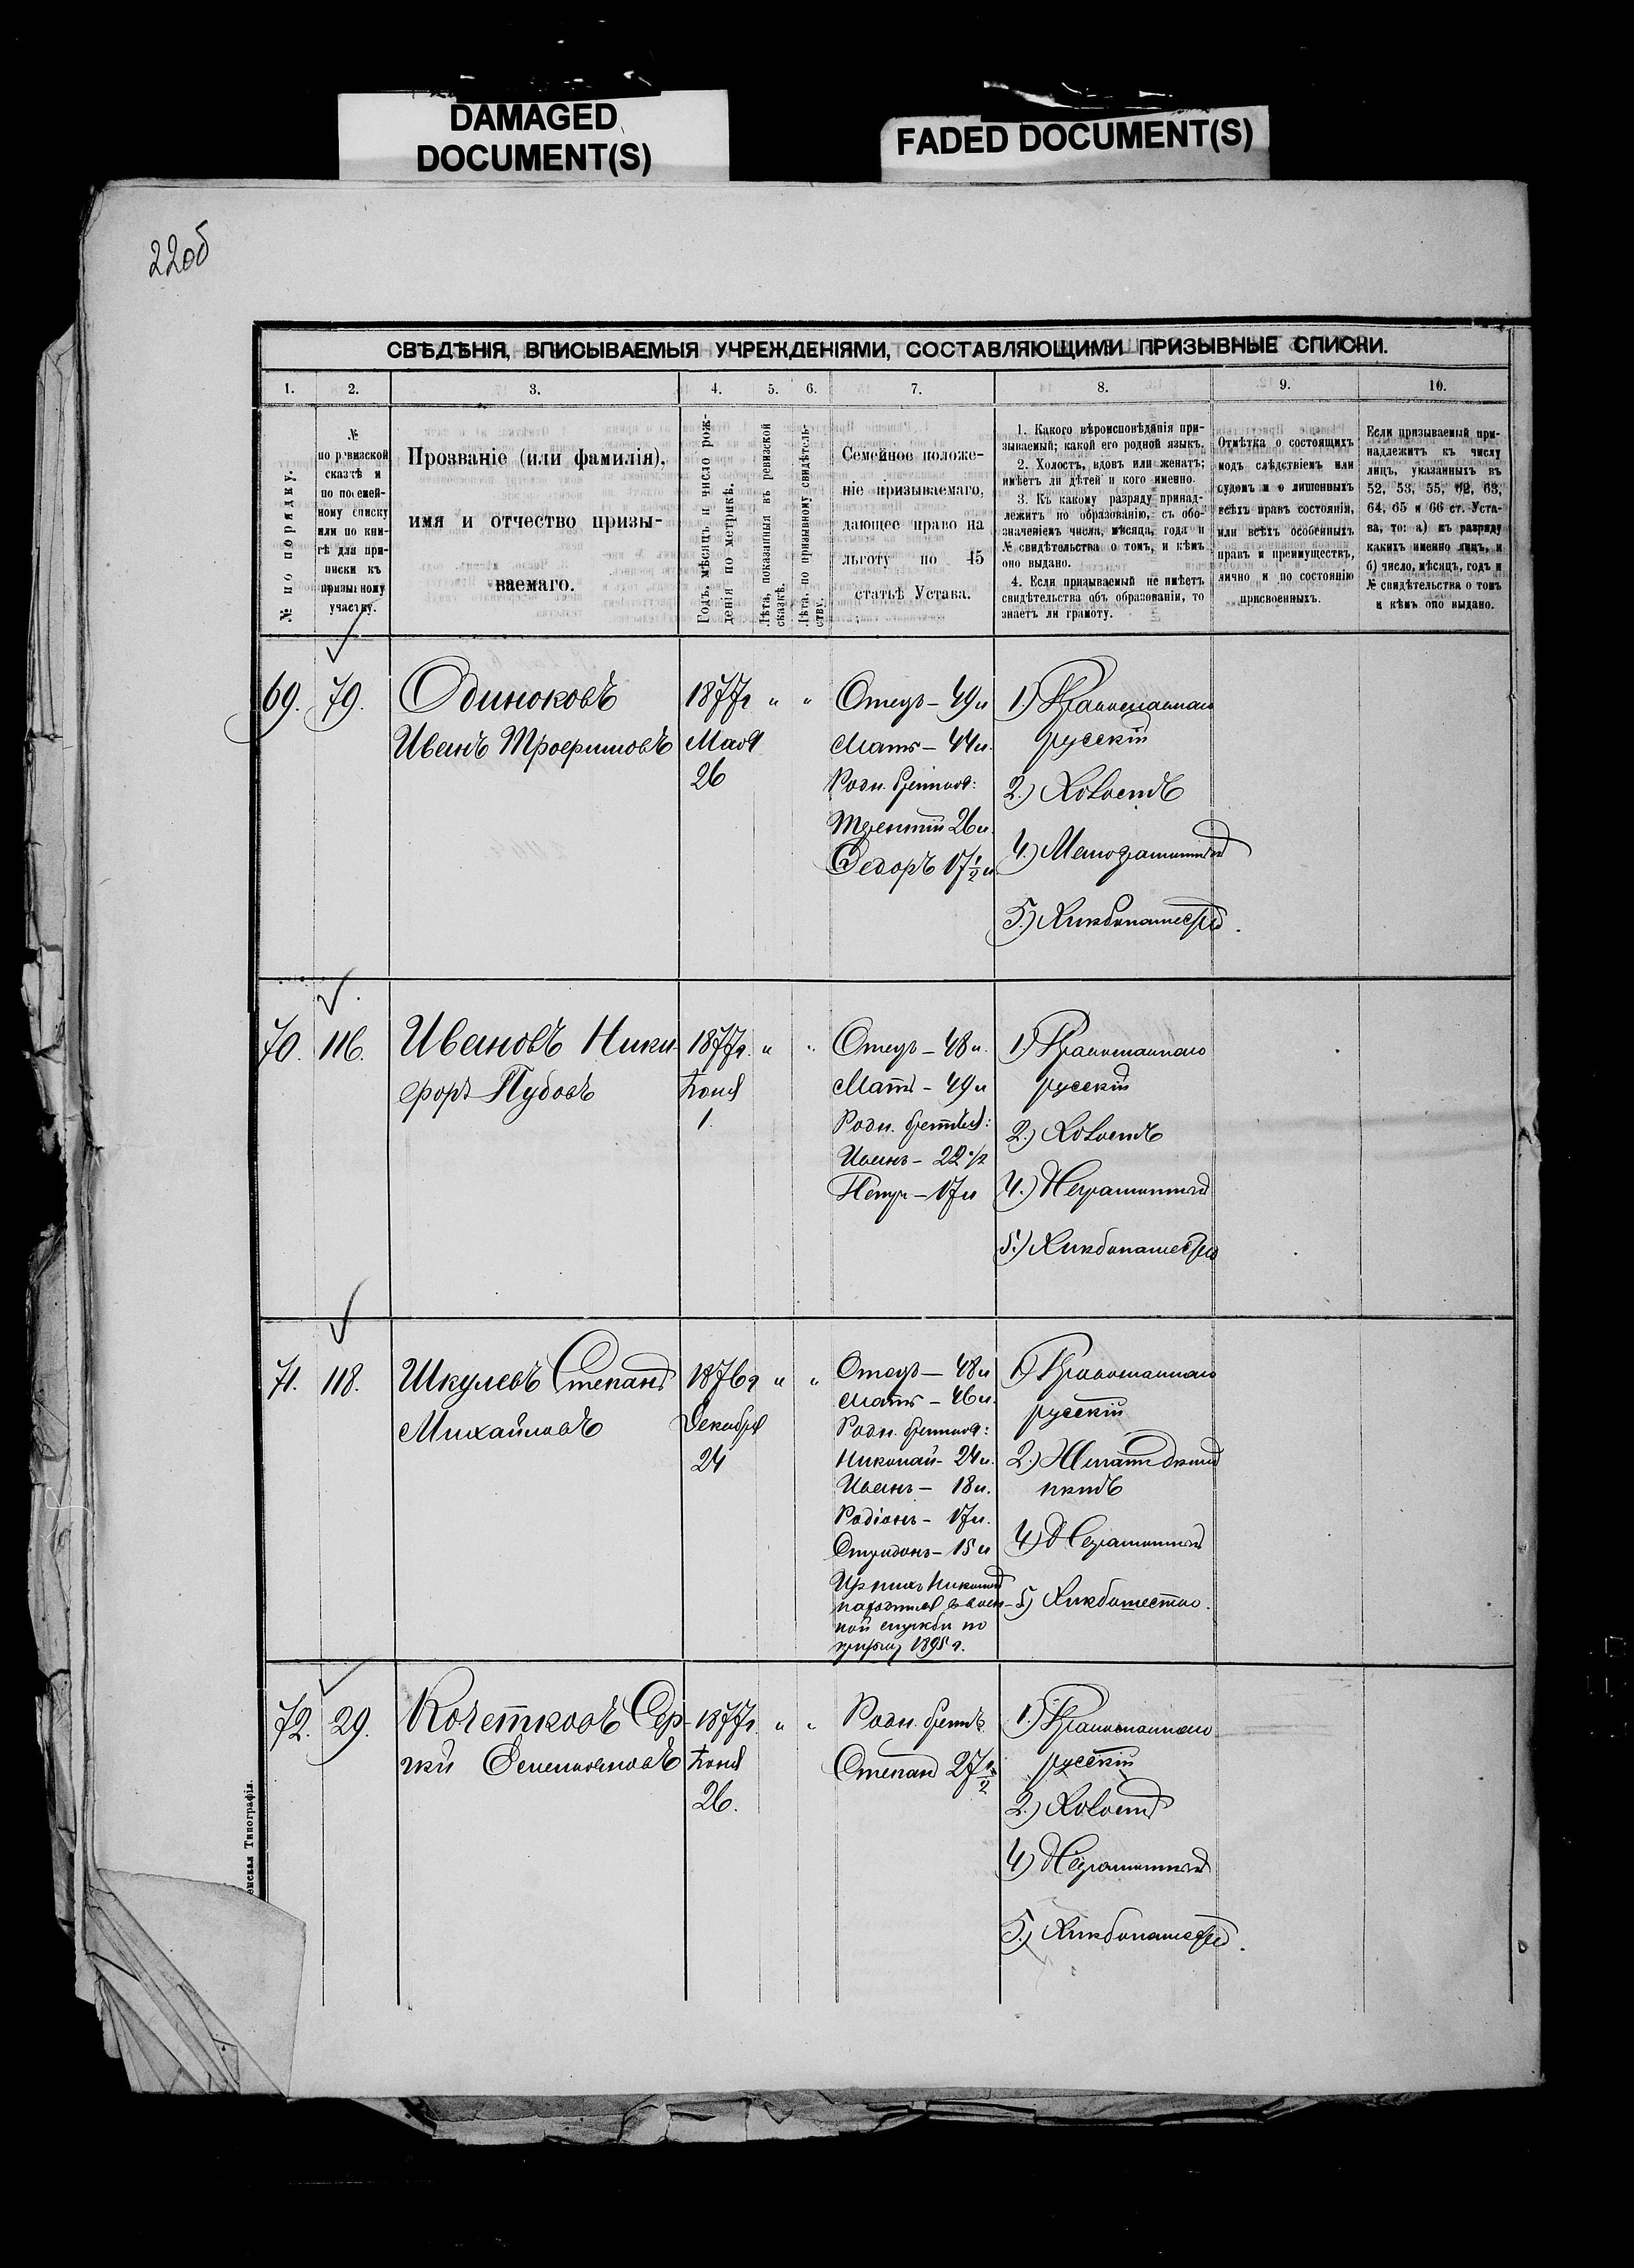 DAMAGED
DOCUMENT(S)
FADED DOCUMENT(S)
22об
СВѢДѢНІЯ, ВПИСЫВАЕМЫЯ УЧРЕЖДЕНІЯМИ, СОСТАВЛЯЮЩИМИ ПРИЗЫВНЫЕ СПИСКИ.
1. 2. 3. 4. 5. 6. 7. 8. 9. 10.
№ по порядку.
№
по ревизской
сказтѣ и
по посемей-
ному списку
или по кни-
гѣ для при-
писки къ
призывному
участку.
Прозваніе (или фамилія),
имя и отчество призы-
ваемаго.
Годъ, мѣсяцъ и число рож-
денія по метрикѣ.
Лѣта, показанныя въ ревизской
сказкѣ.
Лѣта, по призывному свидѣтель-
ству.
Семейное положе-
ніе призываемаго,
дающее право на
льготу по 45
статьѣ Устава.
1. Какого вѣроисповѣданія при-
зываемый; какой его родной языкъ.
2. Холостъ, вдовъ или женатъ;
имѣетъ ли дѣтей и кого именно.
3. Къ какому разряду принад-
лежитъ по образованію, съ обо-
значеніемъ числа, мѣсяца, года и
№ свидѣтельства о томъ, и кѣмъ
оно выдано.
4. Если призываемый не имѣетъ
свидѣтельства объ образованіи, то
знаетъ ли грамоту.
Отмѣтка о состоящихъ
подъ слѣдствіемъ или
судомъ и о лишенныхъ
всѣхъ правъ состоянія,
или всѣхъ особенныхъ
правъ и преимуществъ,
лично и по состоянію
присвоенныхъ.
Если призываемый при-
надлежитъ къ числу
лицъ, указанныхъ въ
52, 53, 55, 62, 63,
64, 65 и 66 ст. Уста-
ва, то: а) къ разряду
какихъ именно лицъ, и
б) число, мѣсяцъ, годъ и
№ свидѣтельства о томъ
и кѣмъ оно выдано.
69. 79.
Одиноковъ
Иванъ Трофимовъ
1877г " "
Мая
26
Отецъ – 49л
Мать – 44л.
Родн. братья:
Терентій 26л.
Ѳедоръ 17 1/2л
1.) Православнаго
русскій
2.) Холостъ
4.) Малограмотный
5.) Хлѣбопашество.
70. 116.
Ивановъ Ники-
форъ Пудовъ
1877г. " "
Іюня
1.
Отецъ – 48л.
Мать – 49л
Родн. братья:
Иванъ – 22 1/2
Петръ – 17л
1.) Православнаго
русскій
2.) Холостъ
4.) Неграмотный
5.) Хлѣбопашество
71. 118.
Шкулевъ Степанъ
Михайловъ
1876г " "
Декабря
24
Отецъ – 48л
Мать – 46л.
Родн. братья:
Николай – 24л.
Иванъ – 18л.
Родіонъ – 17л.
15л
Изъ нихъ Николай
находится въ воен-
ной службѣ по
призыву 1895 г.
1.) Православнаго
русскій
2.) Женатъ дѣтей
нѣтъ
4) Неграмотный
5)
72. 29.
Кочетковъ Сер-
гѣй
1877г. " "
Іюня
26.
Родн. братъ
Степанъ 27 1/2
1.) Православнаго
русскій
2.) Холостъ
4) Неграмотный
5.) Хлѣбопашество.
Типографія.